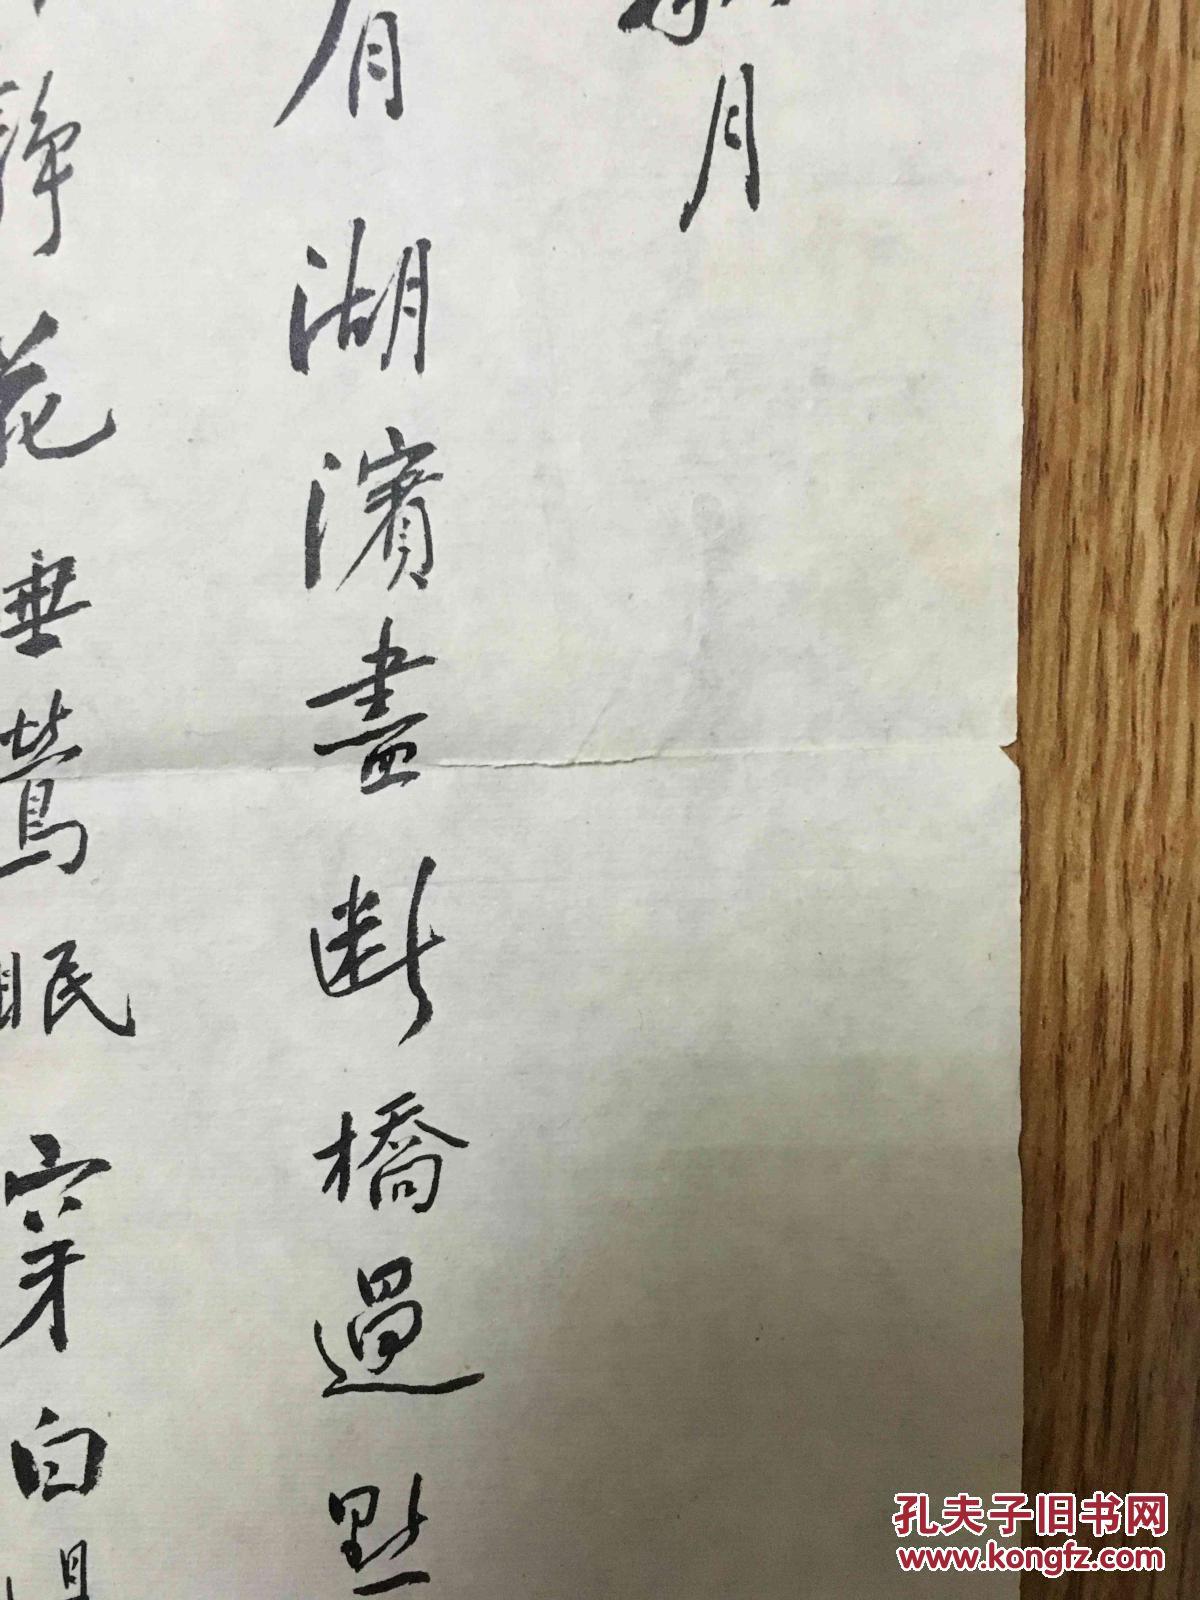 月
有湖濱畫断橋過點
靜花垂鶯眠穿白
孔夫子旧书网
www.kongfz.com